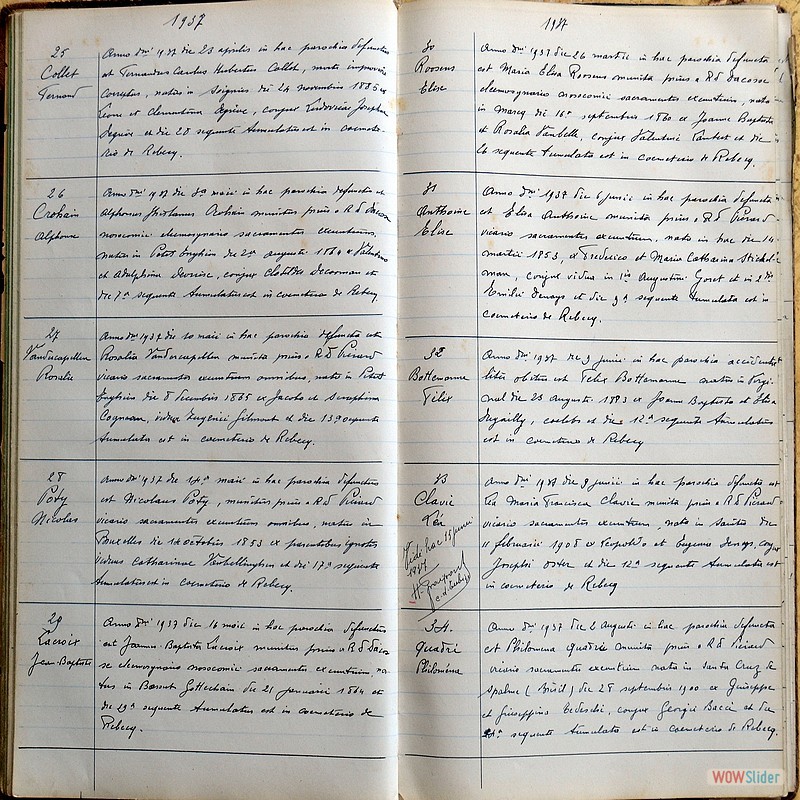 1937
25
Collet
Fernand
Anno dni 1937 die 23 aprilis in hac parochia defunctus
est Fernandus Carolus Hubertus Collet, morte improvisa
correptus, natus in Soignies die 24 novembris 1885 ex
Leone et Clementina Degrève, conjux Ludovicae Josephae
Degrève et die 28 sequente tumulatus est in coemete-
rio de Rebecq.
26
Crohain
Alphonse
Anno dni 1937 die 3a maii in hac parochia defunctus est
Alphonsus Crohain munitus prius a Rd Dacosse
nosocomii eleemosynario sacramentis exeuntium,
natus in Petit Enghien die 2a augusti 1864 ex Valentino
et Adelphina Devriese, conjux Clotildis Decooman et
die 7a sequente tumulatus est in coemeterio de Rebecq
27
Vandercapellen
Rosalie
Anno dni 1937 die 10 maii in hac parochia defuncta est
Rosalia Vandercapellen munita prius a Rd Pierard
vicario sacramentis exeuntium omnibus, nata in Petit
Enghien die 8 decembris 1865 ex Jacobo et Seraphina
Cognean, vidua Eugenii Gilmont et die 13a sequente
tumulata est in coemeterio de Rebecq.
28
Poty
Nicolas
Anno dni 1937 die 14a maii in hac parochia defunctus
est Nicolaus Poty, munitus prius a Rd Pierard
vicario sacramentis exeuntium omnibus, natus in
Bruxelles die 14 octobris 1853 ex parentibus ignotis
viduus Catharinae Vanbellinghen et die 17a sequente
tumulatus est in coemeterio de Rebecq.
29
Lacroix
Jean-Baptiste
Anno dni 1937 die 16 maii in hac parochia defunctus
est Joannes Baptista Lacroix munitus prius a Rd Dacos-
se eleemosynario nosocomii sacramentis exeuntium, na-
tus in Bossut Gottechain die 21 januarii 1864 et
die 19a sequente tumulatus est in coemeterio de
Rebecq.
1937
30
Roosens
Elise
Anno dni 1937 die 26 martii in hac parochia defuncta
est Maria Elisa Roosens munita prius a Rd Dacosse
eleemosynario nosocomii sacramentis exeuntium, nata
in Marcq die 16a septembris 1860 ex Joanne Baptista
et Rosalia Vanbelle, conjux Valentini Lambert et die
sequente tumulata est in coemeterio de Rebecq.
31
Anthoine
Elise
Anno dni 1937 die 6 junii in hac parochia defuncta
est Elisa Anthoine munita prius a Rd Pierard
vicario sacramentis exeuntium, nata in hac die 14
martii 1853, ex Frederico et Maria Catharina Stichel-
man, conjux vidua in 1is Augustini Goret et in 2is
Emilii Denays et die 9a sequente tumulata est in
coemeterio de Rebecq.
32
Bottemanne
Félix
Anno dni 1937 die 9 junii in hac parochia acciden-
taliter obitus est Felix Bottemanne natus in
die 23 augusti 1883 ex Joanne Baptista et Elisa
coelebs et die 12a sequente tumulatus
est in coemeterio de Rebecq
33
Clavie
Léa
Vide hac 15 junii
1947
Anno dni 1937 die 9 junii in hac parochia defuncta est
Lea Maria Francisca Clavie munita prius a Rd Pierard
vicario sacramentis exeuntium, nata in Saintes die
11 februarii 1908 ex Leopoldo et Eugenia Denays, conjux
Josephi Oster et die 12a sequente tumulata est
in coemeterio de Rebecq
34.
Quadri
Philomène
Anno dni 1937 die 2 augusti in hac parochia defuncta
est Philomena Quadri munita prius a Rd Pierard
vicario sacramentis exeuntium nata in Santa Cruz de
Spalme (Brésil) die 28 septembris 1900 ex Giuseppe
et Giuseppina Tedeschi, conjux Georgii Bacci et die
sequente tumulata est in coemeterio de Rebecq.
WOWSlider